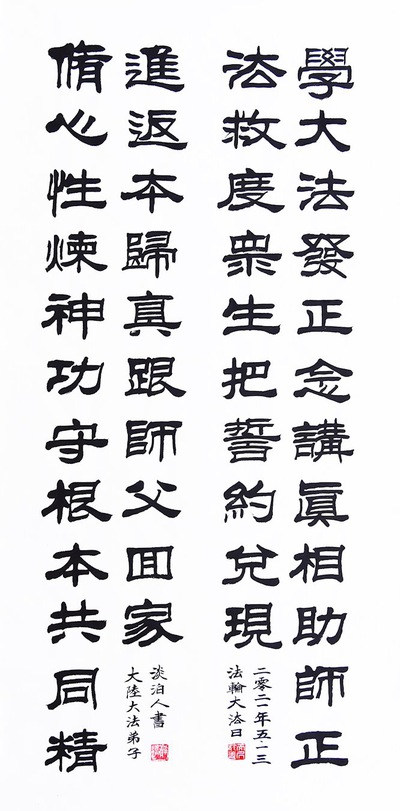 學大法發正念講眞相助師正
法救度衆生把誓約兌現
二零二一年五·一三
法輪大法日
脩心性煉神功守根本共同精
進返本歸真跟師父囬家
淡泊人書
大陸大法弟子